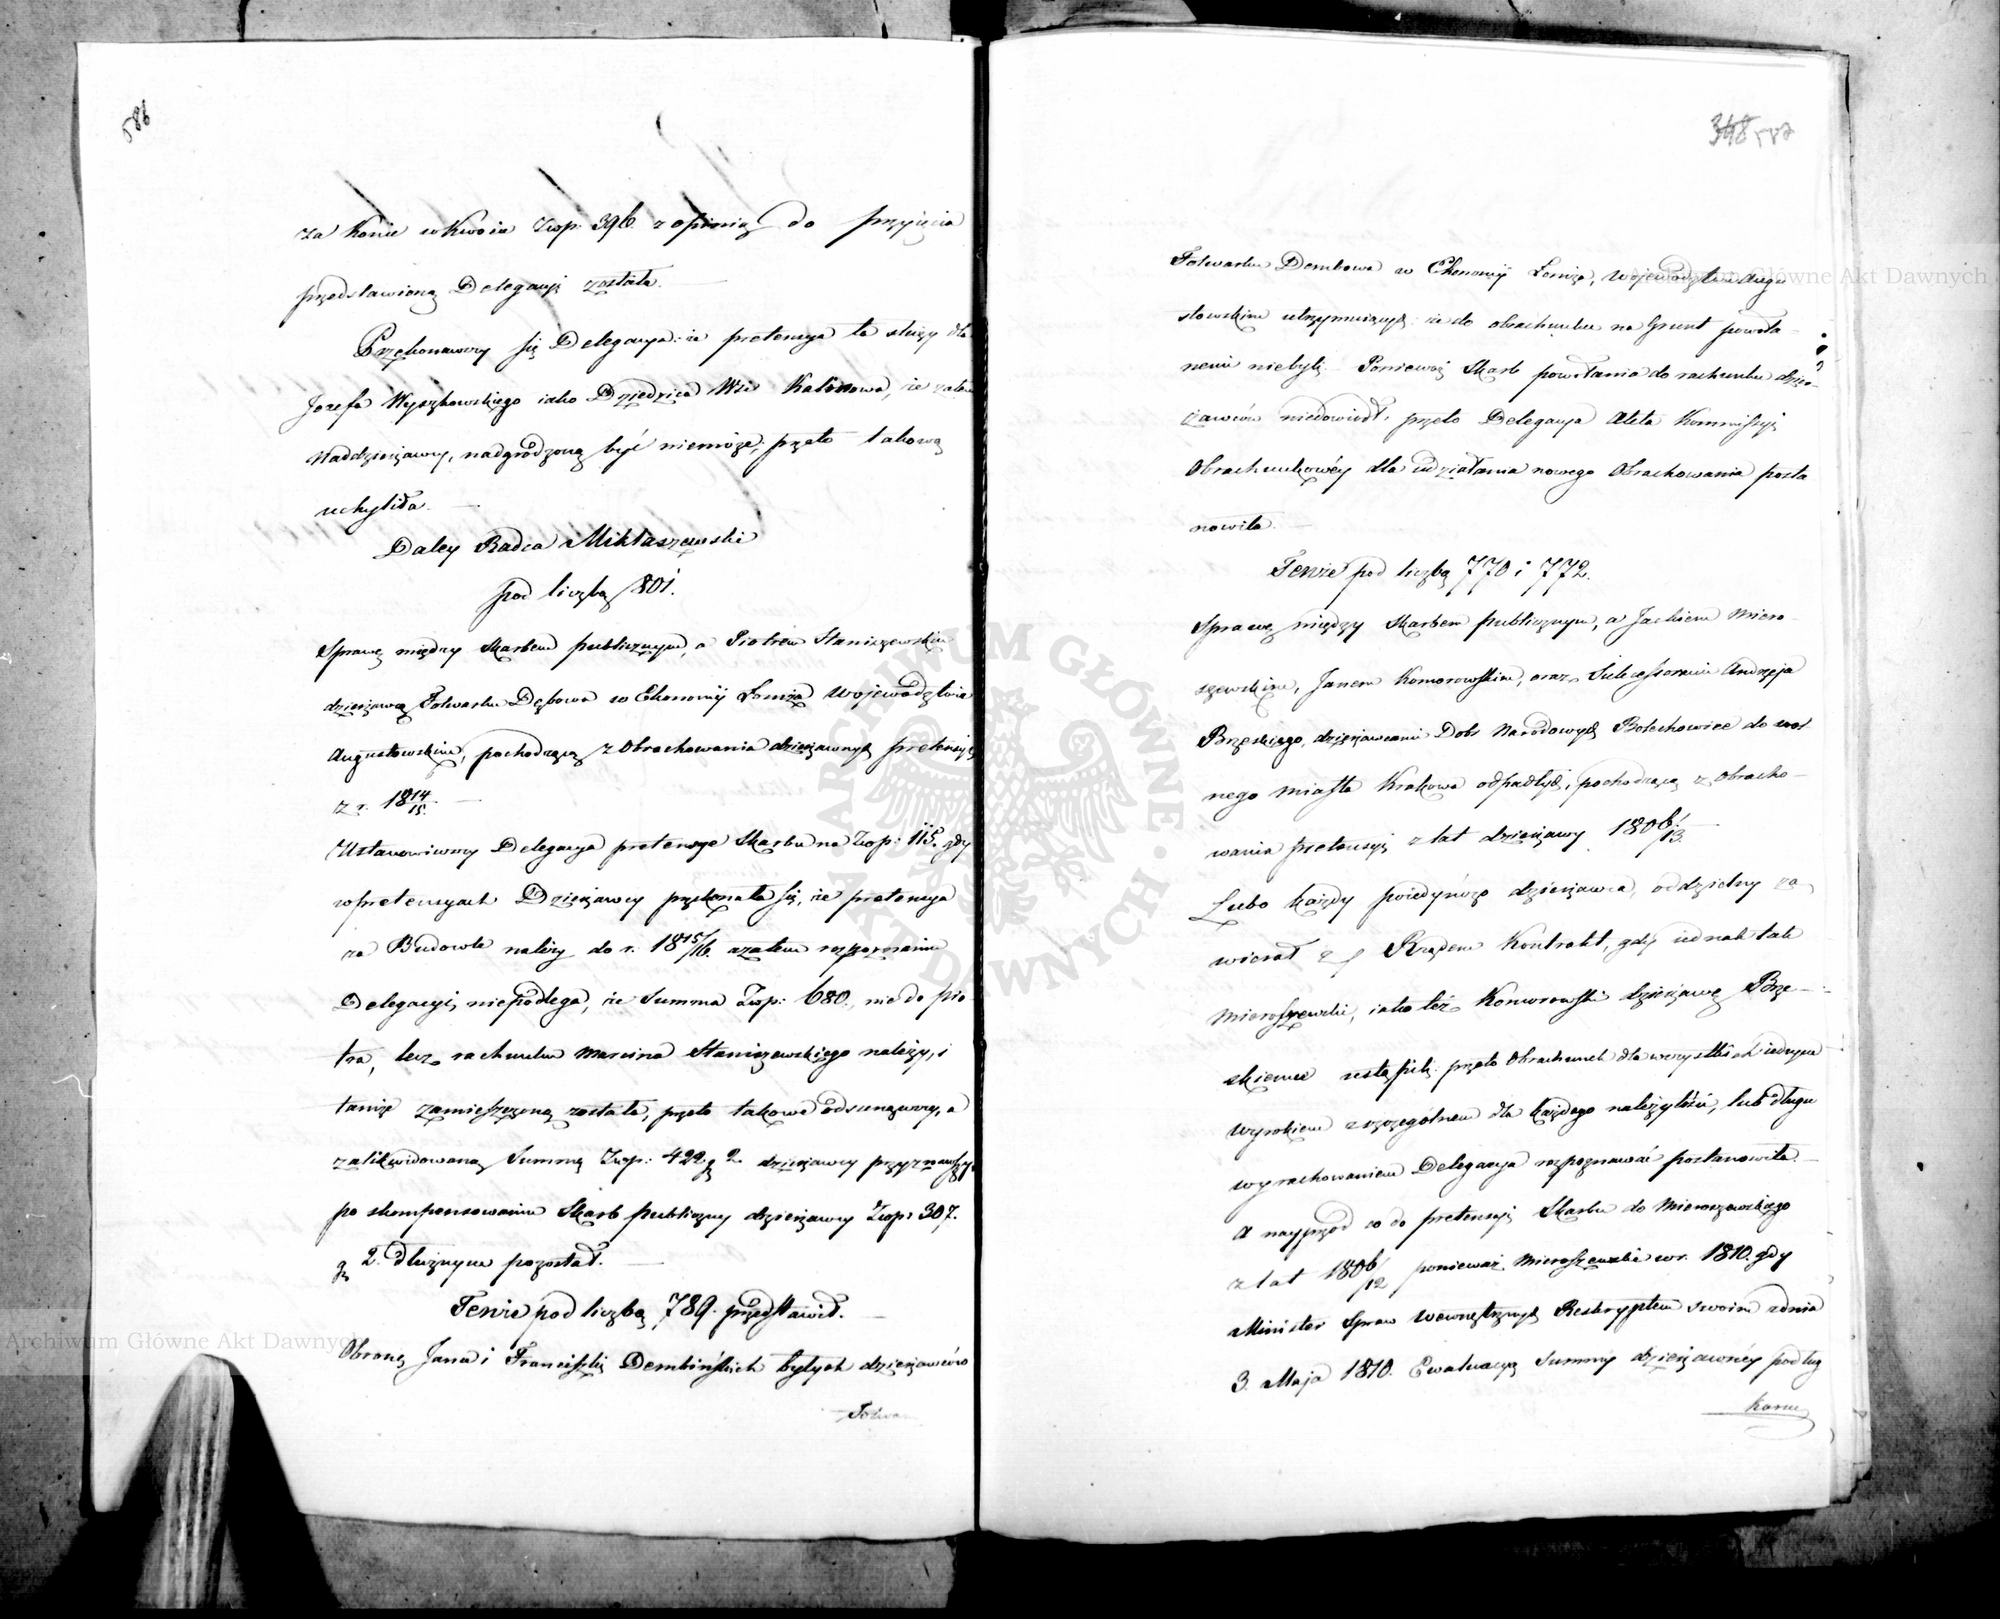 586
za konie w kwocie Złłp: 396. z opinią do przyięcia
przedstawioną Delegacyi została. —
Przekonawszy się Delegacya: że pretensya ta służy dla
Jozefa Wyszkowskiego iako Dziedzica Wsi Katinowa, że zatem
Naddzierżawcy, nadgrodzoną być niemoże, przeto takową
uchyliła. —
Daley Radca Miklaszewski
pod liczbą 801.
Sprawę między Skarbem publicznym, a Piotrem Staniszewskim
dzierżawcą Folwarku Dębowa w Ekonomij Łomża Wojewodztwie
Augustowskim, pochodzącą z Obrachowania dzierżawnych pretensyi
z r. 1814/15. —
Ustanowiwszy Delegacya pretensye Skarbu na Złłp: 115. gdy
w pretensyach Dzierżawcy przekonała się, że pretensya
za Budowle należy do r. 1815/16. azatem rozpoznaniu
Delegacyi niepodlega, że Summa Złłp: 680. nie do Pio-
tra, lecz rachunku Marcina Staniszewskiego należy, i
tamże zamieszczoną została, przeto takowe odsunąwszy, a
zalikwidowaną Summę Złłp: 422. g 2. dzierżawcy przyznawszy,
po skompensowaniu Skarb publiczny dzierżawcy Złłp: 307.
g 2. dłużnym pozostał. —
Tenże pod liczbą 789. przedstawił. —
Obronę Jana i Franciszki Dembińskich byłych dzierżawców
Folwar
348 587
Folwarku Dembowa w Ekonomij Łomża, Wojewodztwie Augu
stowskim utrzymujących: że do obrachunku na Grunt powoła-
nemi niebyli. Ponieważ Skarb powołania do rachunku dzier-
żawców niedowiodł, przeto Delegacya Akta Kommissyi
Obrachunkowéy dla udziałania nowego Obrachowania posta
nowiła. —
Tenże pod liczbą 770 i 772.
Sprawę między Skarbem publicznym, a Jackiem Miero-
szewskim, Janem Komorowskim, oraz Sukcessorami Andrzeja
Brzeskiego, dzierżawcami Dobr Narodowych Bolechowice do wol
nego miasta Krakowa odpadłych, pochodzącą z Obracho-
wania pretensyi z lat dzierżawy 1806/13. —
Lubo każdy poiedyńczo dzierżawca, oddzielny za
wierał z Rządem Kontrakt, gdy iednak tak
Mieroszewski, iako też Komorowski dzierżawę Brze-
skiemu ustąpili, przeto Obrachunek dla wszystkich iednym
wyrokiem z szczegolnem dla każdego należytości, lub długu
wyrachowaniem Delegacya rozpoznawać postanowiła. —
A nayprzód co do pretensyi Skarbu do Mieroszewskiego
z lat 1806/12 ponieważ Mieroszewski w r. 1810. gdy
Minister Spraw Wewnętrznych Reskryptem swoim z dnia
3. Maja 1810. Ewaluacyą Summy dzierżawnéy podług
Kursu
Archiwum Główne Akt Dawnych
Archiwum Główne Akt Dawnych
ARCHIWUM GŁÓWNE AKT DAWNYCH